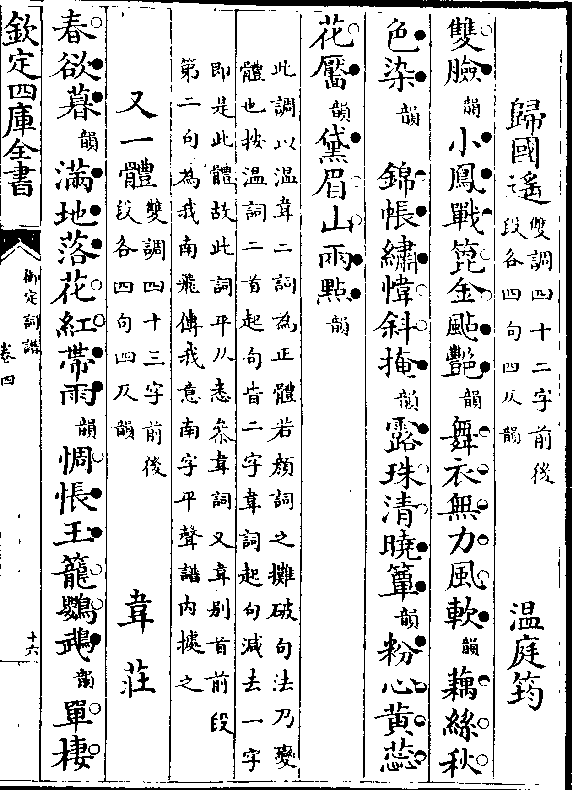 歸國遥 雙調四十二字前後
段各四句四仄韻 温庭筠
雙臉韻小鳳戰箆金颭艷韻舞衣無力風軟韻藕絲秋
色染韻 錦帳繡幃斜掩韻露珠清曉簟韻粉心黄蕊
花靨韻黛眉山兩點韻
此調以温韋二詞為正體若顔詞之攤破句法乃變
體也按温詞二首起句皆二字韋詞起句減去一字
即是此體故此詞平仄悉參韋詞又韋别首前段
第二句為我南飛傳我意南字平聲譜内據之
又一體 雙調四十三字前後
段各四句四仄韻 韋莊
春欲暮韻滿地落花紅帶雨韻惆悵王籠鸚鵡韻單棲
欽定四庫全書
御定詞譜
卷四
十六